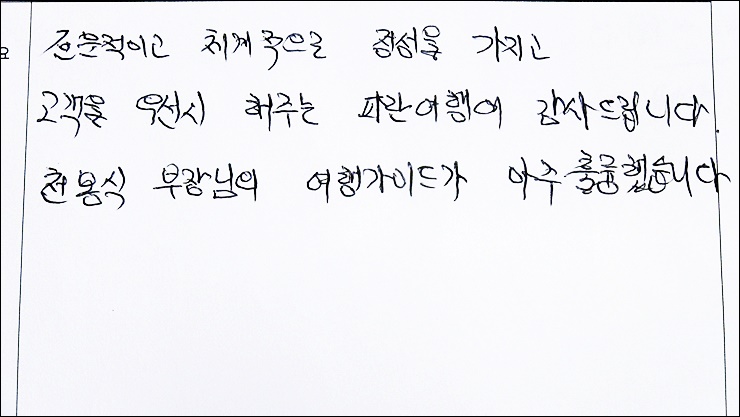 전문적이고 체계적으로 정성을 가지고
고객을 우선시 해주는 파란여행에 감사드립니다.
천봉식 부장님의 여행가이드가 아주 훌륭했습니다